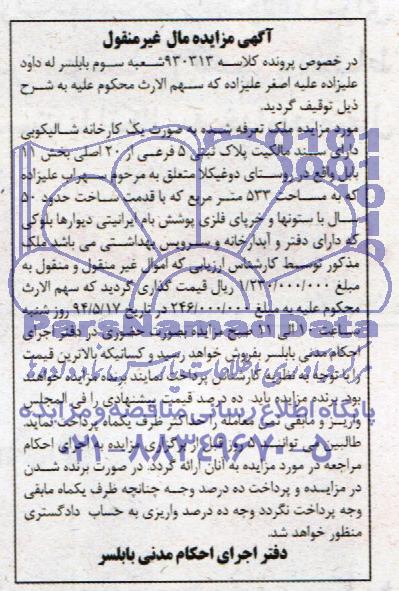 آگهی مزایده مال غیرمنقول
در خصوص پرونده کلاسه ۹۳۰۳۱۳شعبه سوم بابلسر له داود
علیزاده علیه اصغر علیزاده که سهم الارث محکوم علیه به شرح
ذیل توقیف گردید.
مورد مزایده ملک تعرفه شده به صورت یک کارخانه شالیکوبی
دارای سند مالکیت پلاک ثبتی ۵ فرعی از ۲۰ اصلی بخش ۱۱
بابل واقع در روستای دوغیکلا متعلق به مرحوم سهراب علیزاده
که به مساحت ۵۳۳ متر مربع که با قدمت ساخت حدود ۵۰
سال با ستونها و خرپای فلزی پوشش بام ایرانیتی دیوارها بلوکی
که دارای دفتر و آبدارخانه و سرویس بهداشتی می باشد ملک
مذکور توسط کارشناس ارزیابی که اموال غیر منقول و منقول به
مبلغ ۱/۲۳۰/۰۰۰/۰۰۰ ریال قیمت گذاری گردید که سهم الارث
محکوم علیه به مبلغ ۲۴۶/۰۰۰/۰۰۰ در تاریخ ۹۴/۵/۱۷ روز شنبه
ساعت ۱۰ الی ۱۱ صبح مزایده بصورت حضوری در دفتر اجرای
احکام مدنی بابلسر بفروش خواهد رسید و کسانیکه بالاترین قیمت
را با توجه به نظریه کارشناس پرداخت نمایند برنده مزایده خواهند
بود. برنده مزایده باید ده درصد قیمت پیشنهادی را فی المجلس
واریز و مابقی ثمن معامله را حداکثر ظرف یکماه پرداخت نماید.
طالبین می توانند روز قبل از برگزاری مزایده به اجرای احکام
مراجعه در مورد مزایده به آنان ارائه گردد. در صورت برنده شدن
در مزایده و پرداخت ده درصد وجه چنانچه ظرف یکماه مابقی
وجه پرداخت نگردد وجه ده درصد واریزی به حساب دادگستری
منظور خواهد شد.
دفتر اجرای احکام مدنی بابلسر
ParsNamadData
پایگاه اطلاع رسانی مناقصه و مزایده
۰۲۱-۸۸۳۴۹۶۷۰-۵